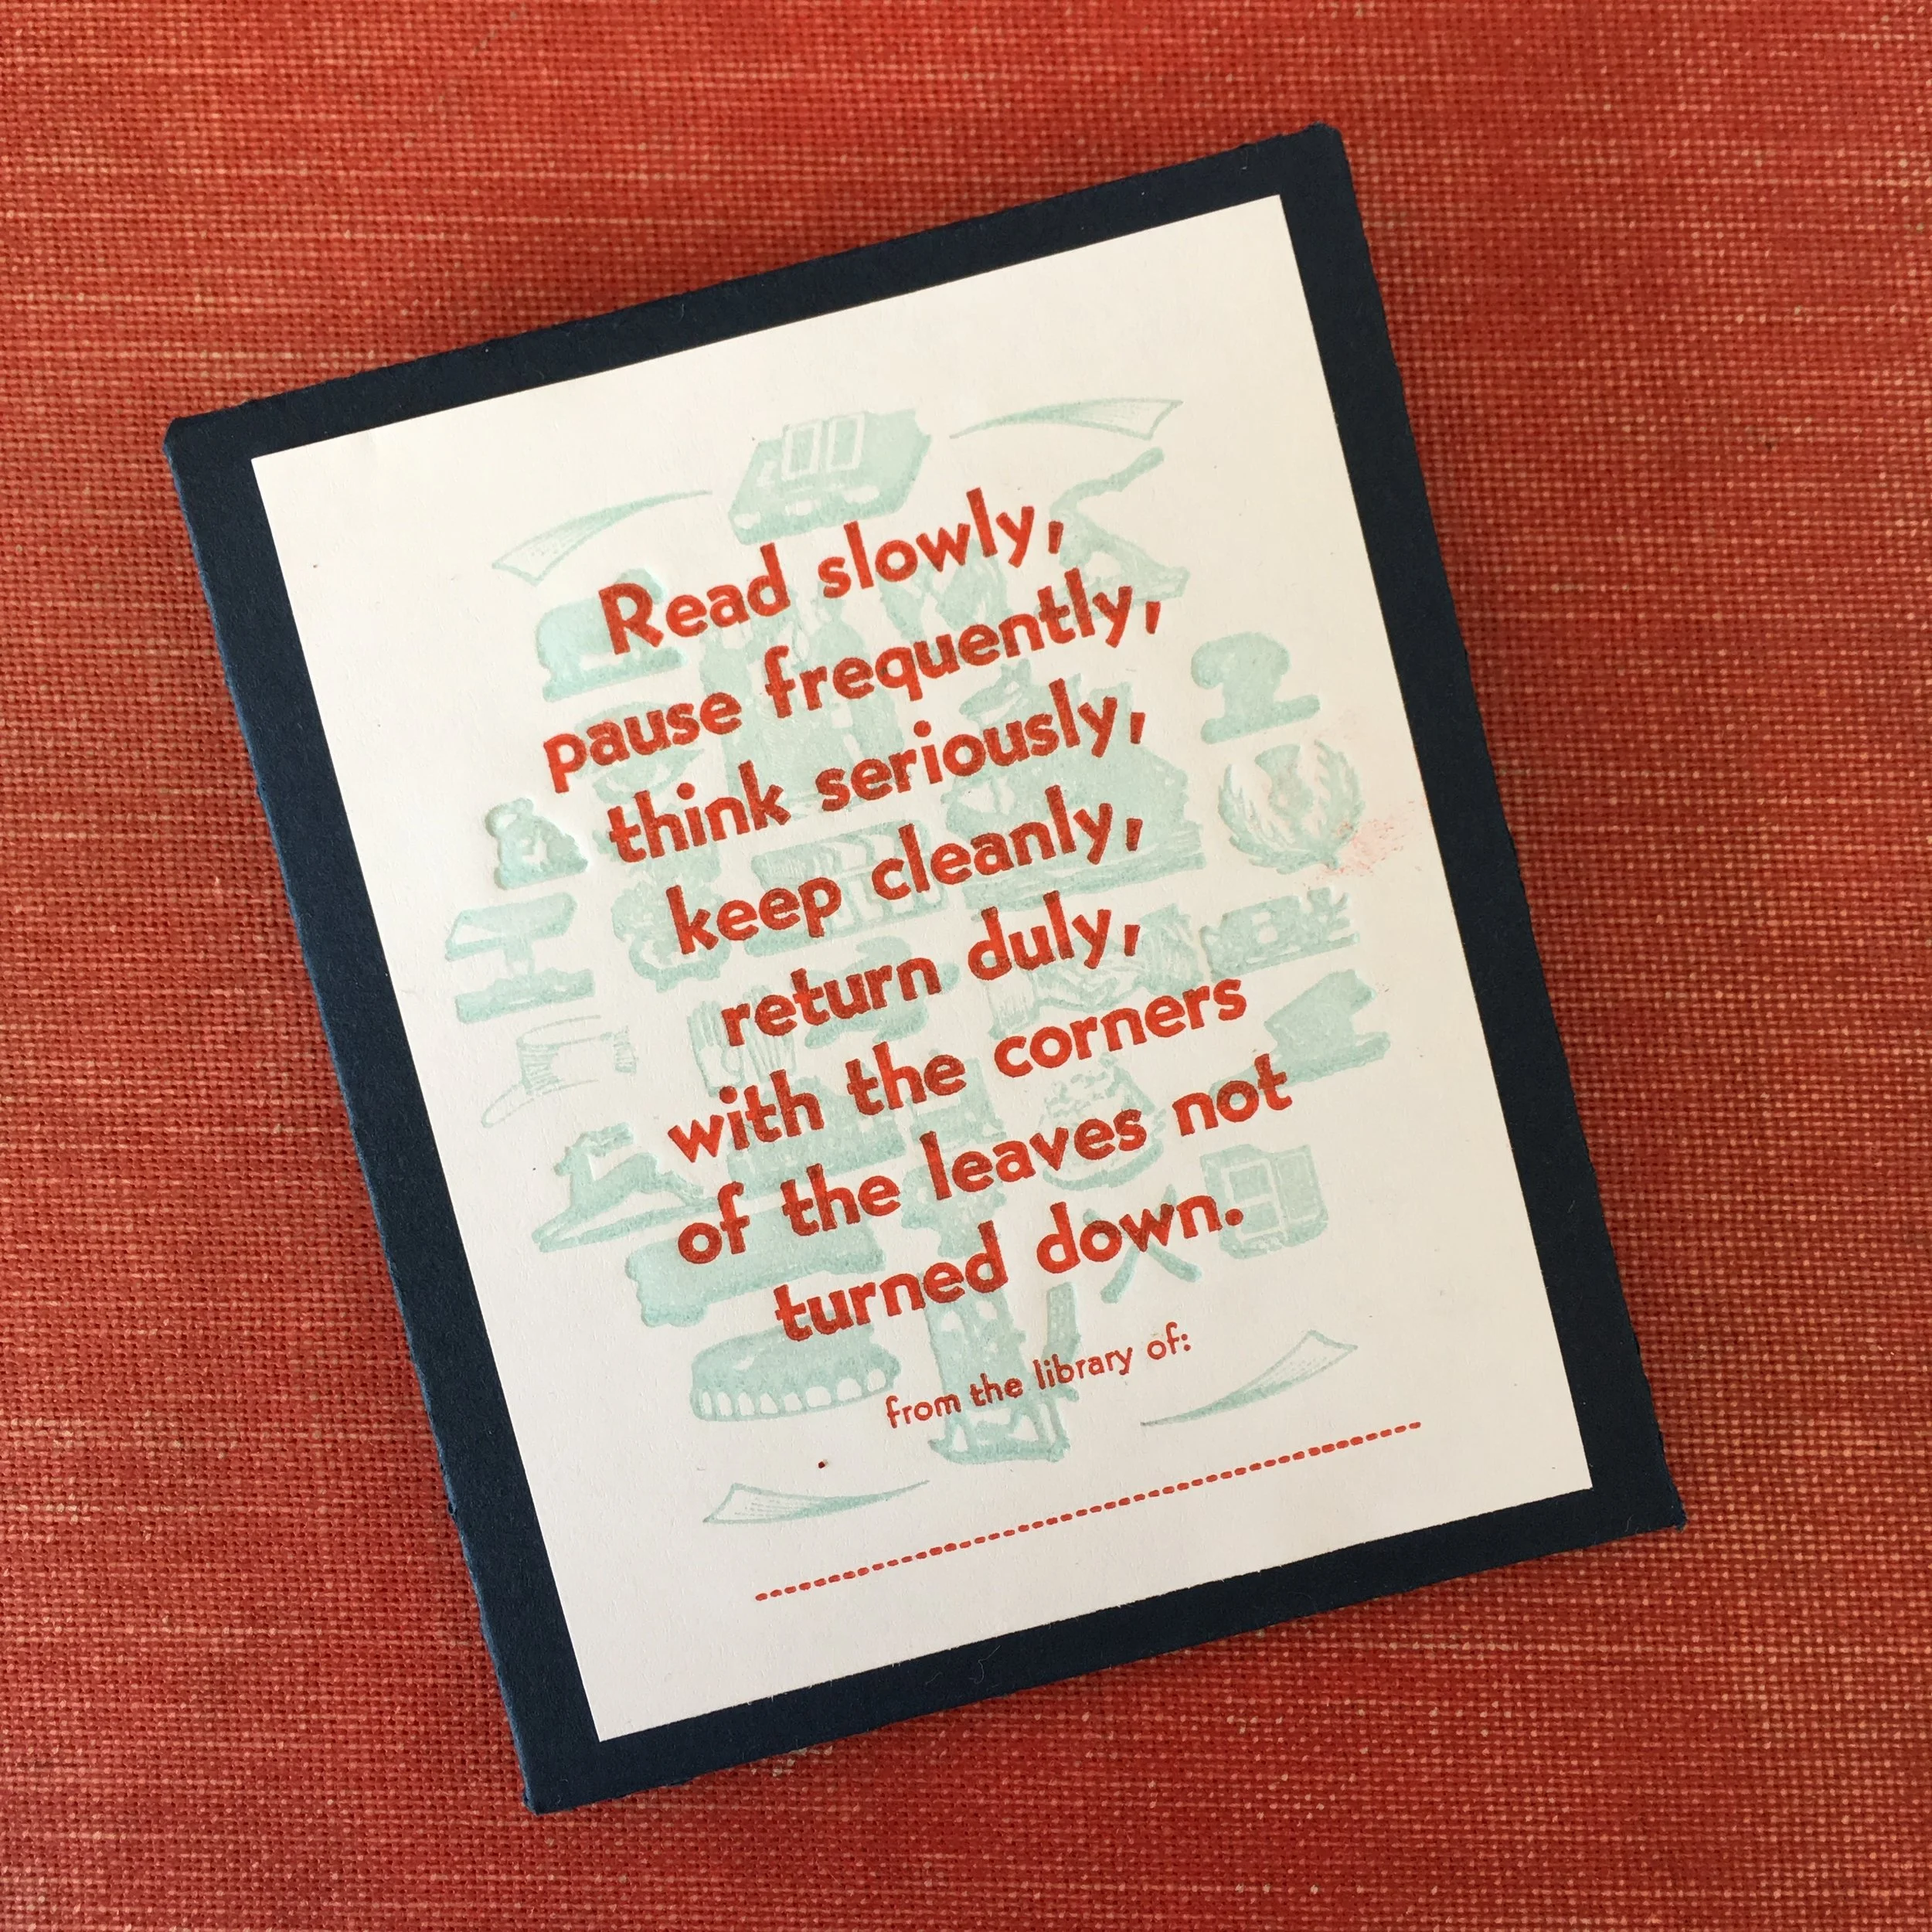 Read slowly,
pause frequently,
think seriously,
keep cleanly,
return duly,
with the corners
of the leaves not
turned down.
from the library of: